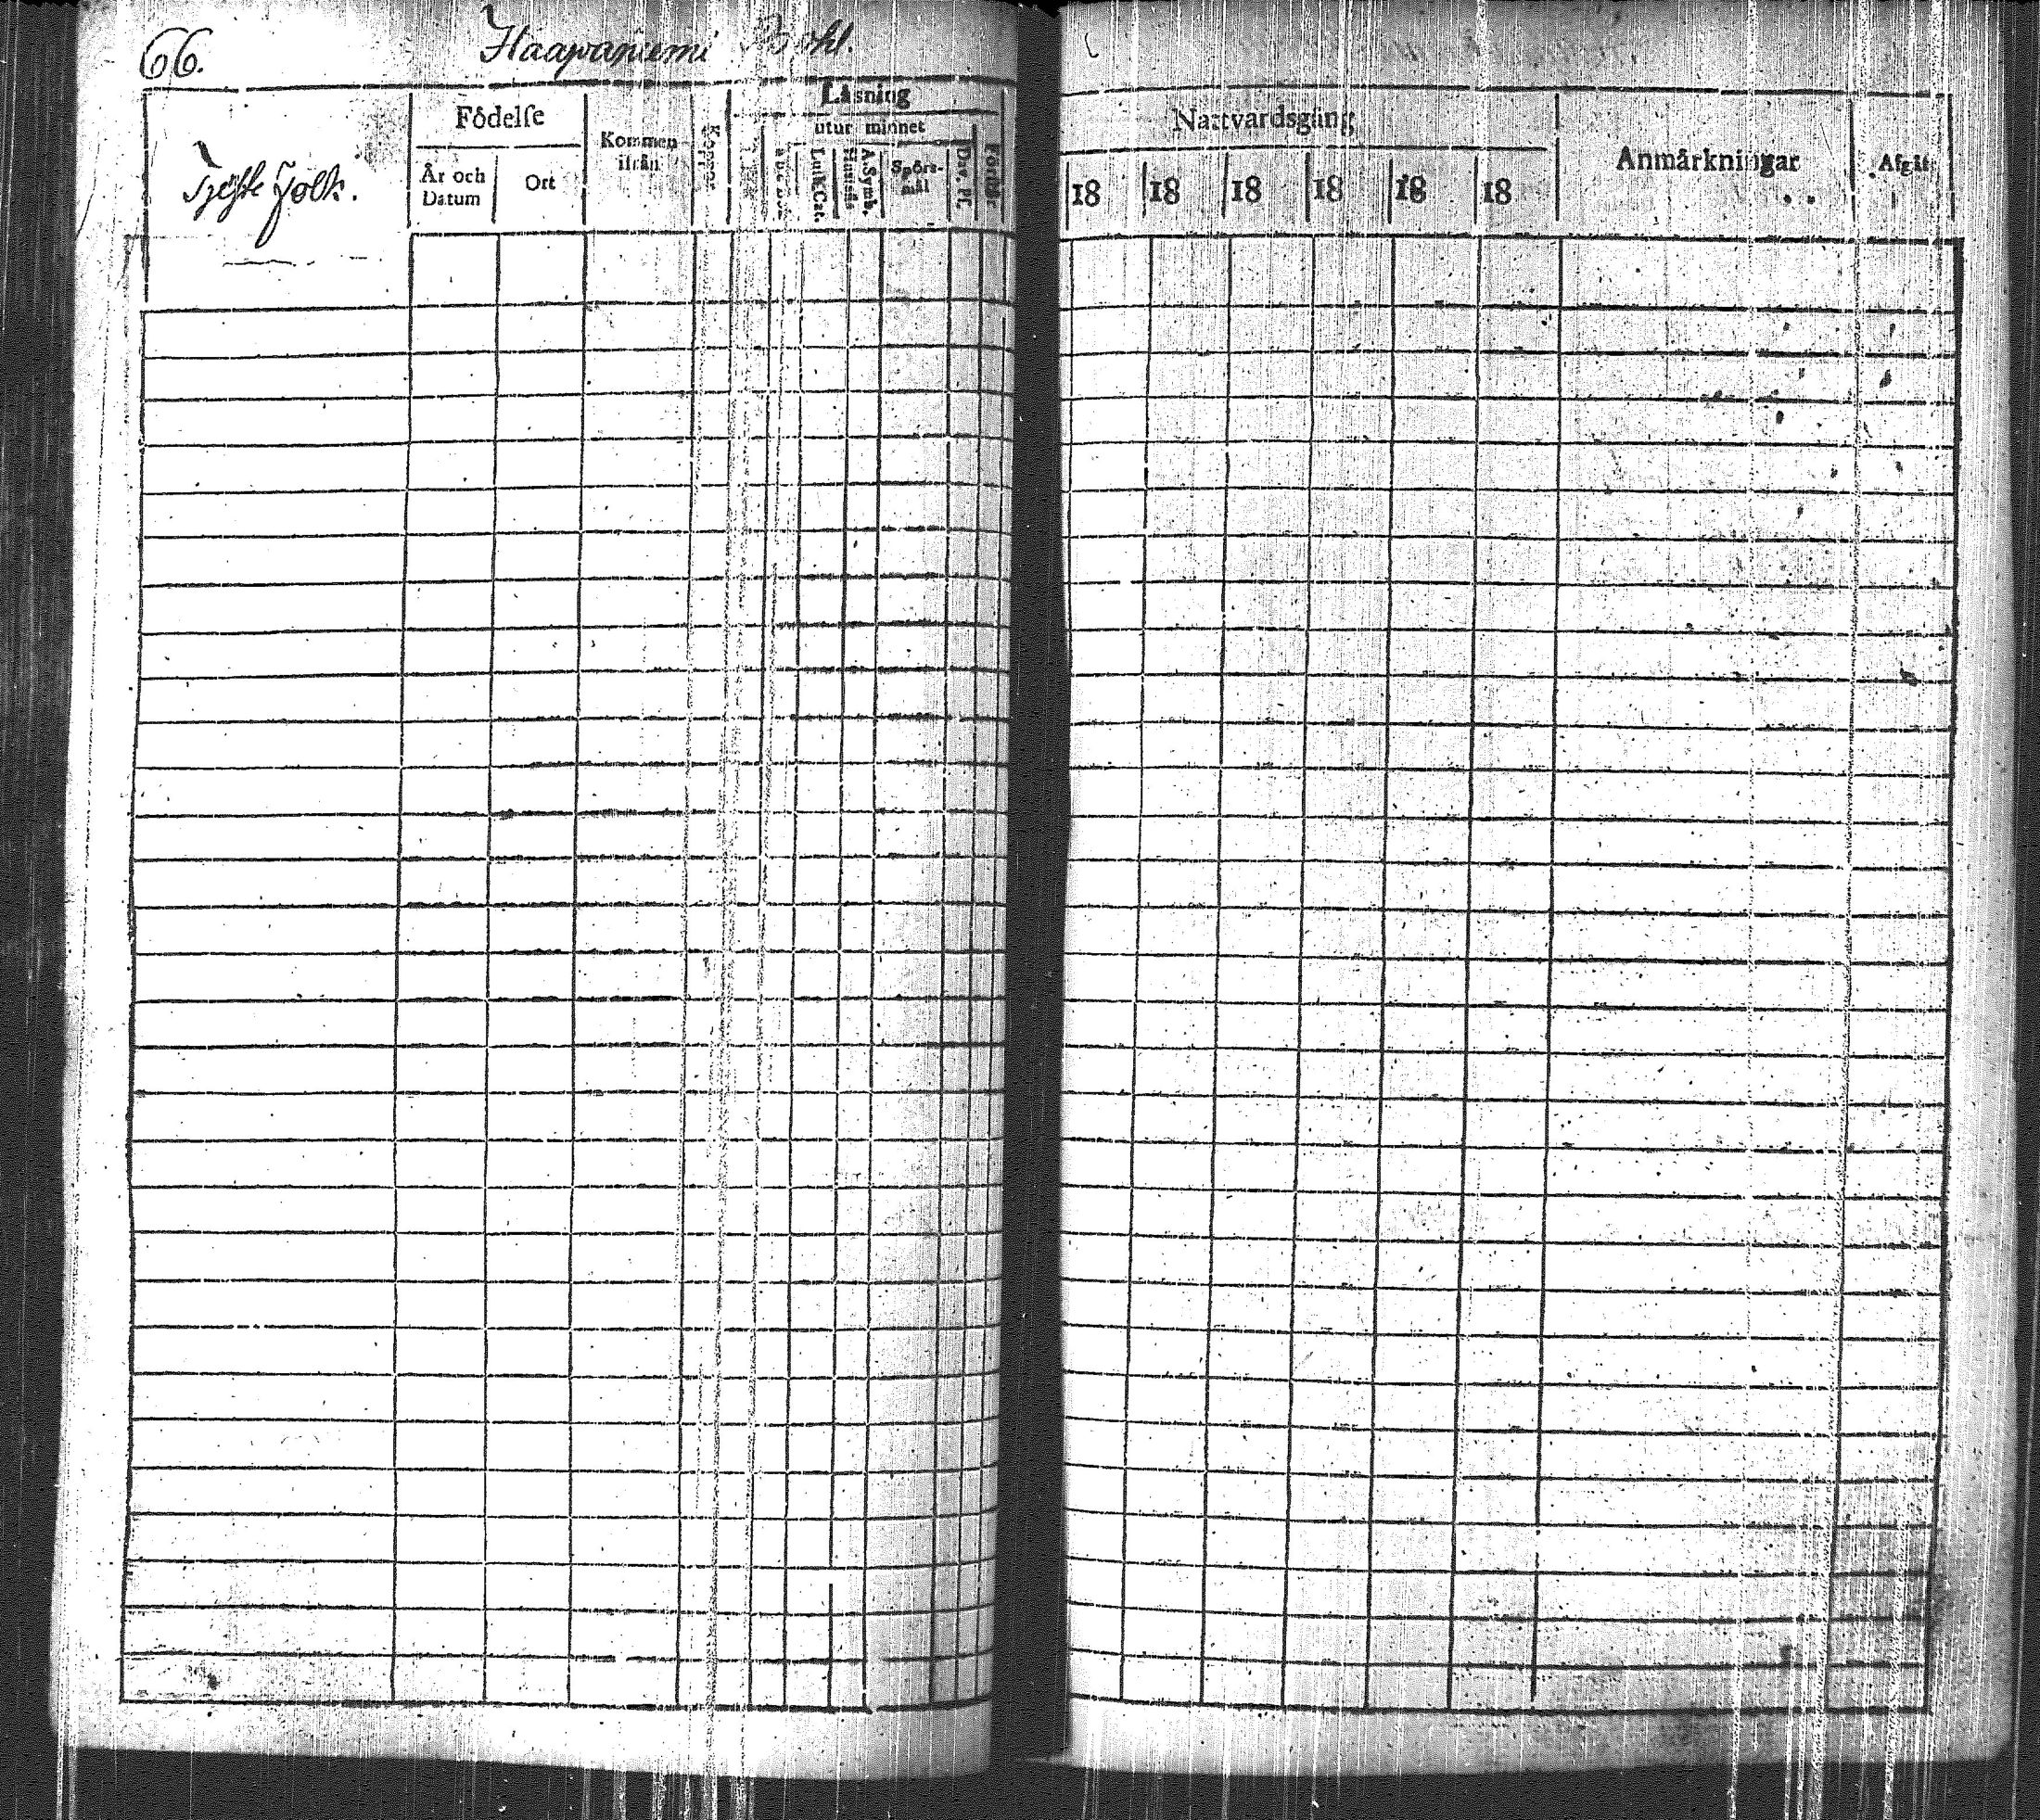 66. Haapaniemi
Läsning
Födelse
utur minnet
Nattvardsgång
Kommen ifrån
Koppor
Anmärkningar
Afgått
Tjenste Folk.
År och Datum
Ort
Luth.Cat.
Hustafla
A.Symb.
Spörs-mål
Dav. Ps.
Förstår
18 18 18 18 18 18